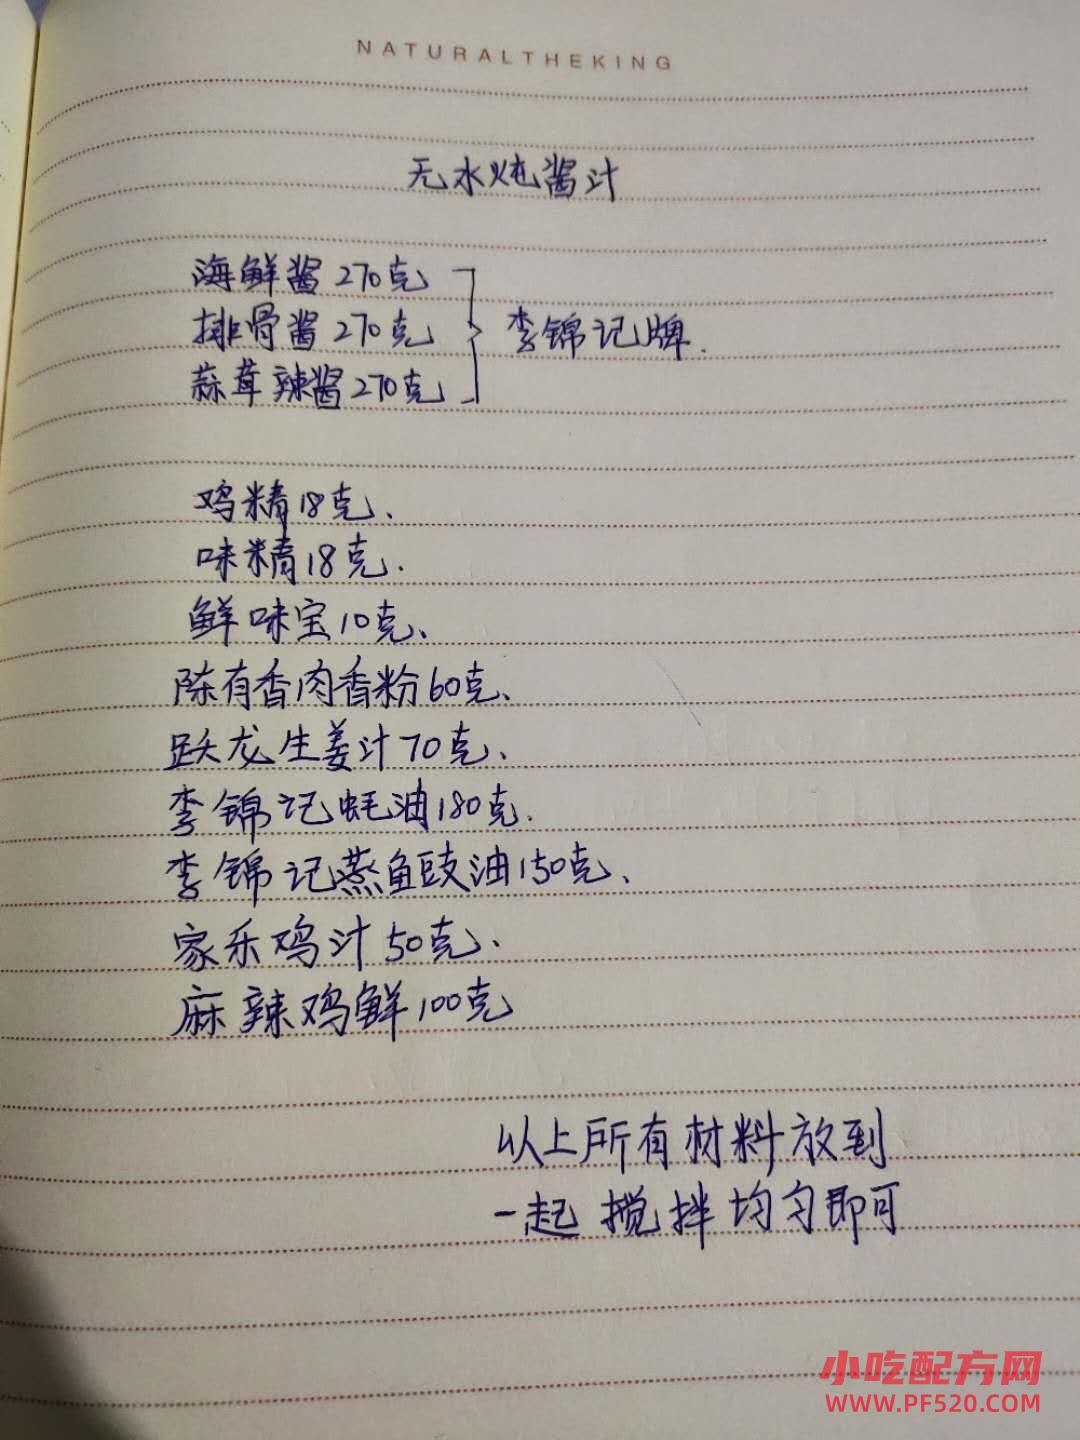 NATURALTHEKING
无水炖酱汁
海鲜酱270克
排骨酱270克 李锦记牌.
蒜茸辣酱270克
鸡精18克、
味精18克.
鲜味宝10克、
陈有香肉香粉60克、
跃龙生姜汁70克、
李锦记蚝油180克.
李锦记蒸鱼豉油150克、
家乐鸡汁50克、
麻辣鸡鲜100克
以上所有材料放到
一起搅拌均匀即可
小吃配方网
WWW.PF520.COM